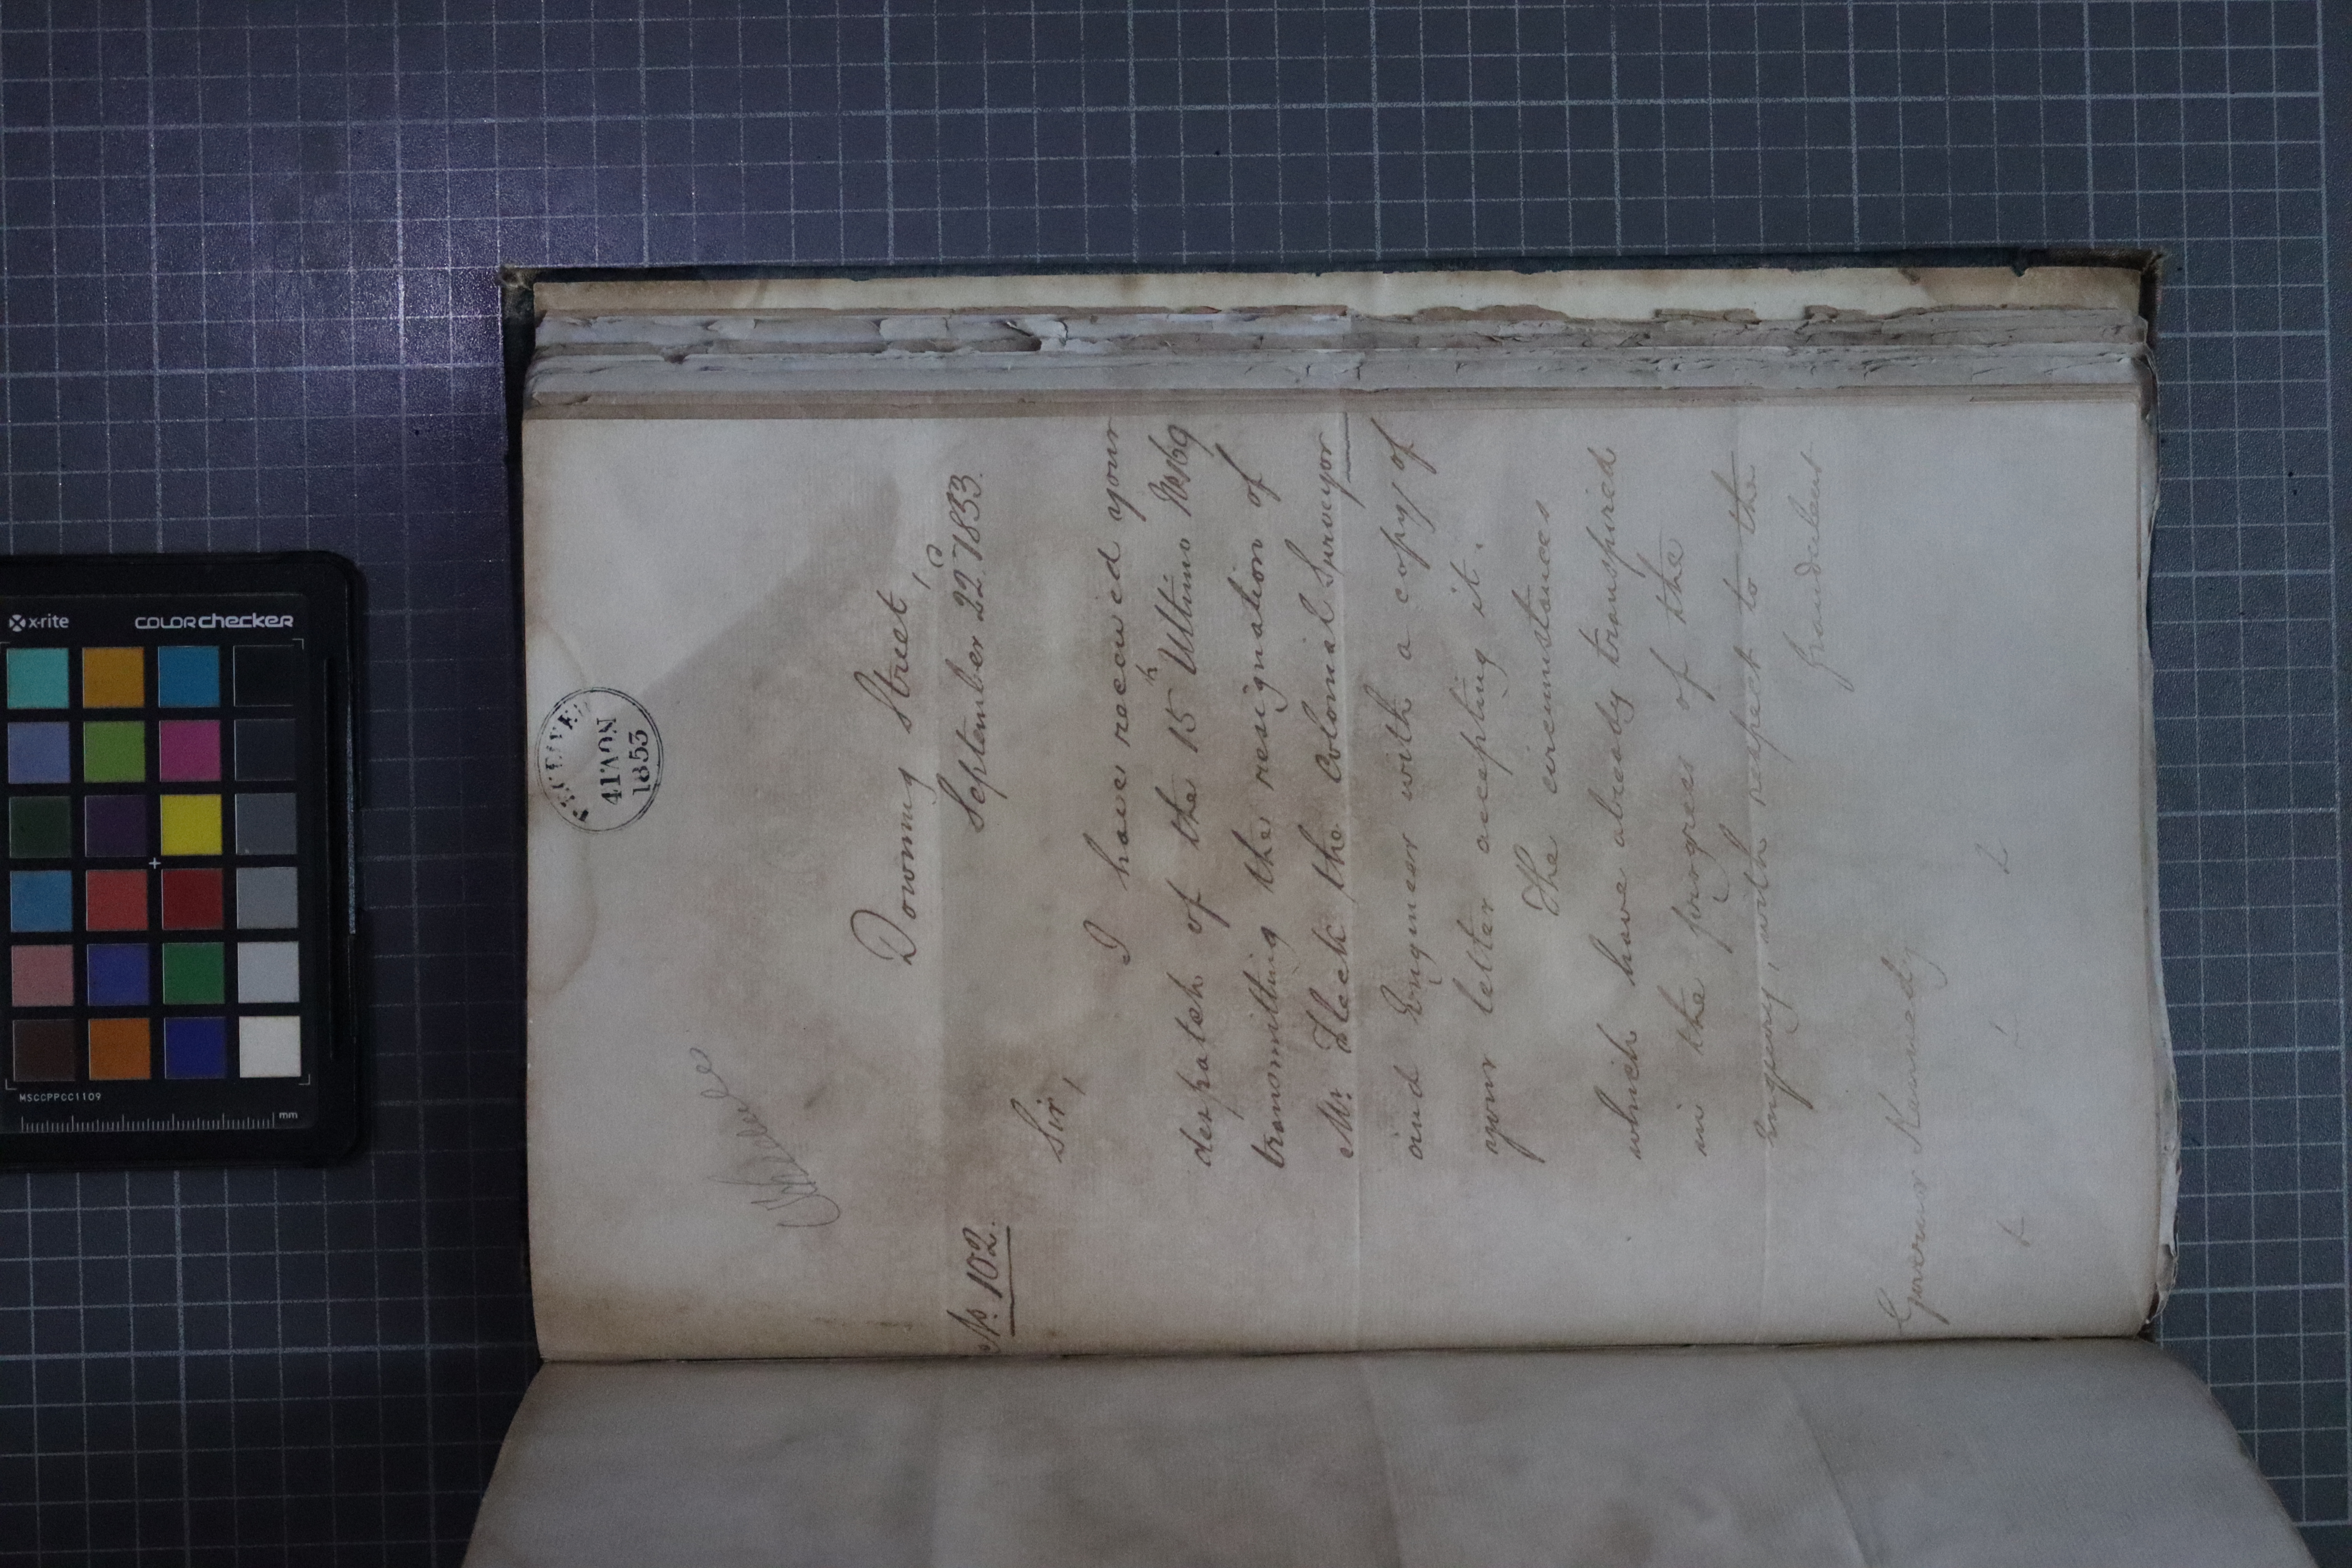 RECEIVED
4 NOV
1853
No. 102.
Downing Street,
September 22d 1853.
Sir,
I have received your
despatch of the 15th Ultimo No 169
transmitting the resignation of
Mr. the Colonial Surveyor
and Engineer with a copy of
your letter accepting it.
The circumstances
which have already transpired
in the progress of the
inquiry, with respect to the
fraudulent
Governor Kennedy
x-rite
colorchecker
MSCCPPCC1109
mm